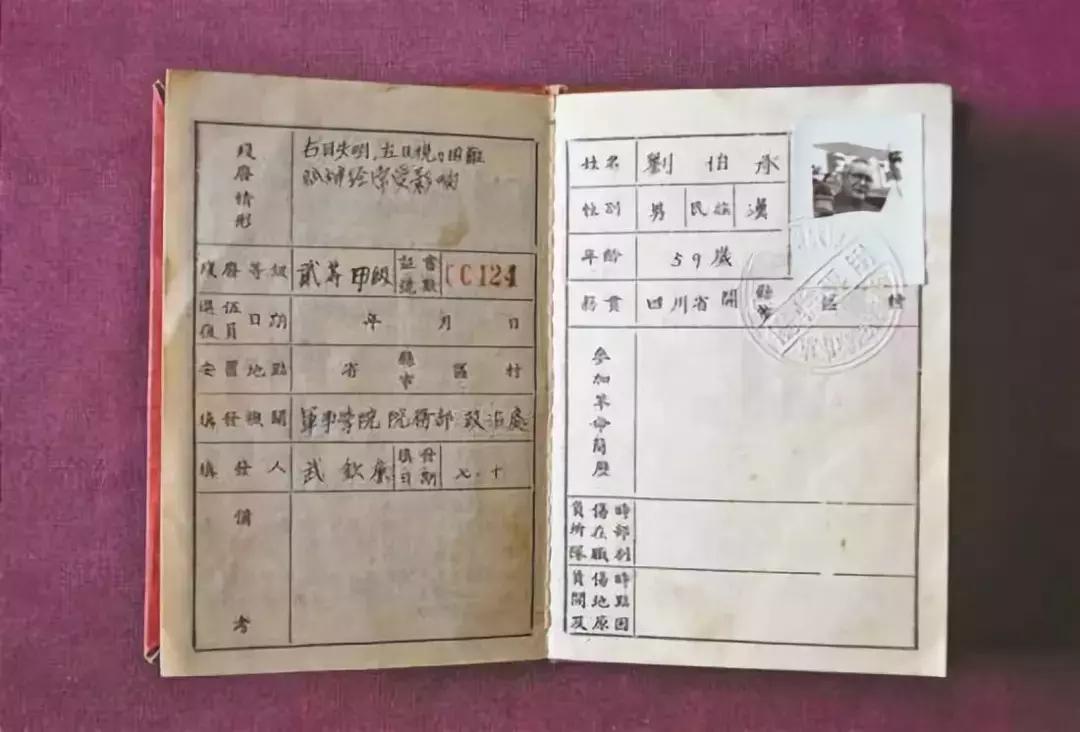 殘廢情形
右目失明,左目視力困難
腦神经常受影响
殘廢等級 貳等甲級 証書號數
退伍復員日期 年 月 日
安置地點 省 縣市 區 村
填發機關 軍事学院 院務部 政治處
填發人 武欽 填發日期 七·十
備考
姓名 劉伯承
性別 男 民族 漢
年齡 59歲
籍貫 四川省 開 縣市 區 村
參加革命簡歷
負傷時所在部隊職別
負傷時間地點及原因